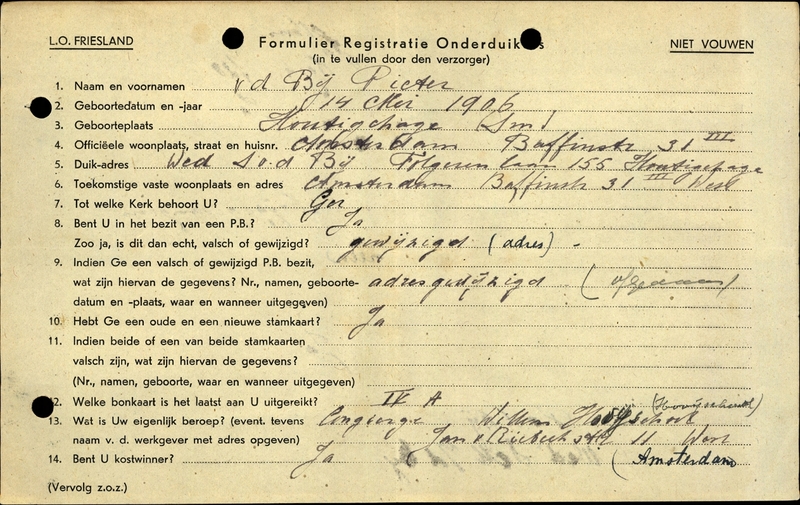 L.O. FRIESLAND
Formulier Registratie Onderduikers
NIET VOUWEN
(in te vullen door den verzorger)
1. Naam en voornamen v d Bij Pieter
2. Geboortedatum en -jaar 14 Mei 1906
3. Geboorteplaats Houtigehage (Sm)
4. Officiëele woonplaats, straat en huisnr. Amsterdam Baffinstr 31 III
5. Duik-adres Wed S. v. d Bij Folgeren laan 155 Houtigehage
6. Toekomstige vaste woonplaats en adres Amsterdam Baffinstr 31 III West
7. Tot welke Kerk behoort U? Ger
8. Bent U in het bezit van een P.B.? Ja
Zoo ja, is dit dan echt, valsch of gewijzigd? gewijzigd (adres) -
9. Indien Ge een valsch of gewijzigd P.B. bezit,
wat zijn hiervan de gegevens? Nr., namen, geboorte- adres gewijzigd
datum en -plaats, waar en wanneer uitgegeven)
10. Hebt Ge een oude en een nieuwe stamkaart? Ja
11. Indien beide of een van beide stamkaarten
valsch zijn, wat zijn hiervan de gegevens?
(Nr., namen, geboorte, waar en wanneer uitgegeven)
12. Welke bonkaart is het laatst aan U uitgereikt? IV A
13. Wat is Uw eigenlijk beroep? (event. tevens Congierge Willem
naam v. d. werkgever met adres opgeven) Jan v Riebeek str 11 West
14. Bent U kostwinner? Ja (Amsterdam
(Vervolg z.o.z.)